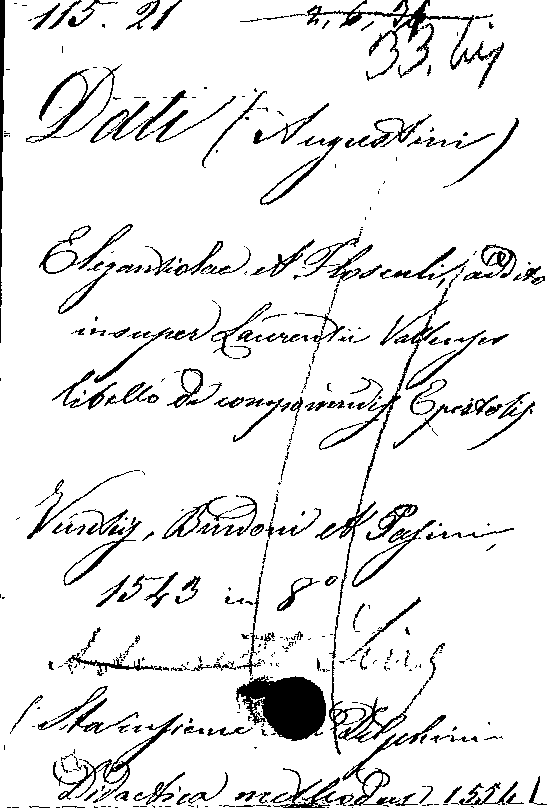 115. 21 2, 6, 31
33. 
Dati (Augustini)
Elegantiolae et Flosculi, addito
insuper Laurentii Vallensis
libello de componendis Epistolis.
Venetiis, Bindoni et Pasini,
1543 in 8°
(Sta insieme Delphini
Didactica methodus 1554)